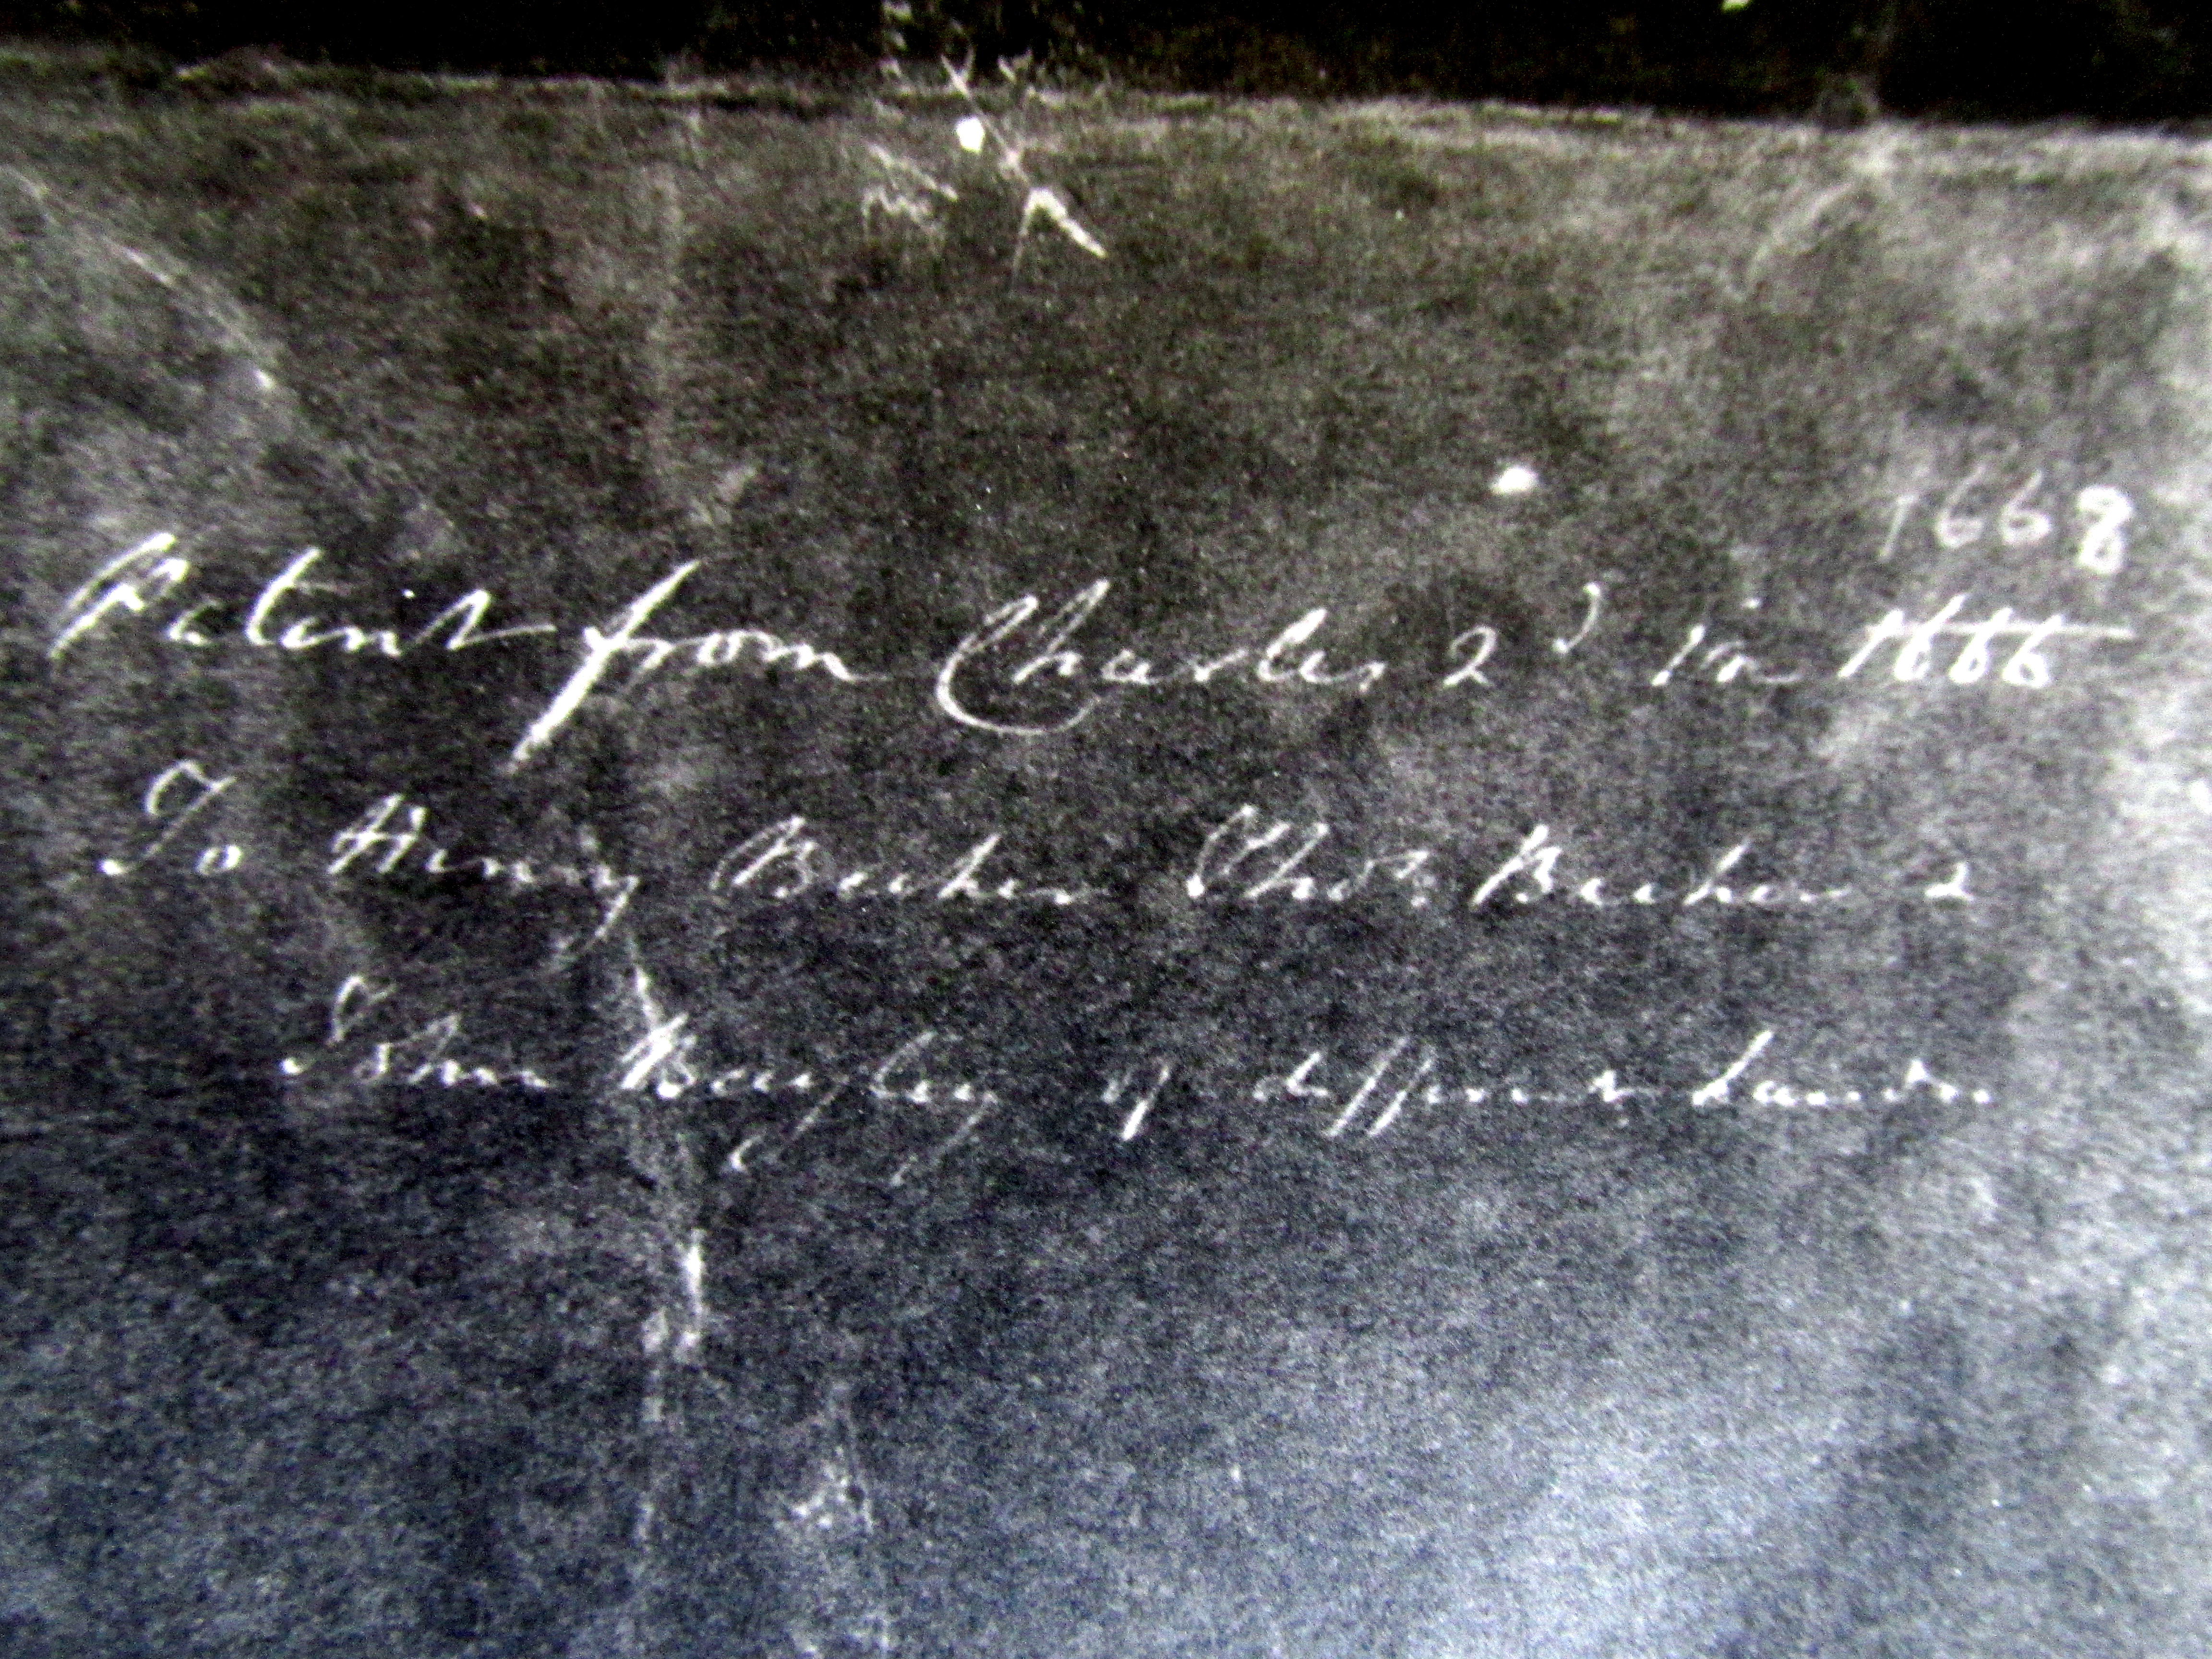 1668
Patent from Charles 2d in 1666
To Henry Becher Thos. Becher &
John Bayley of different Lands